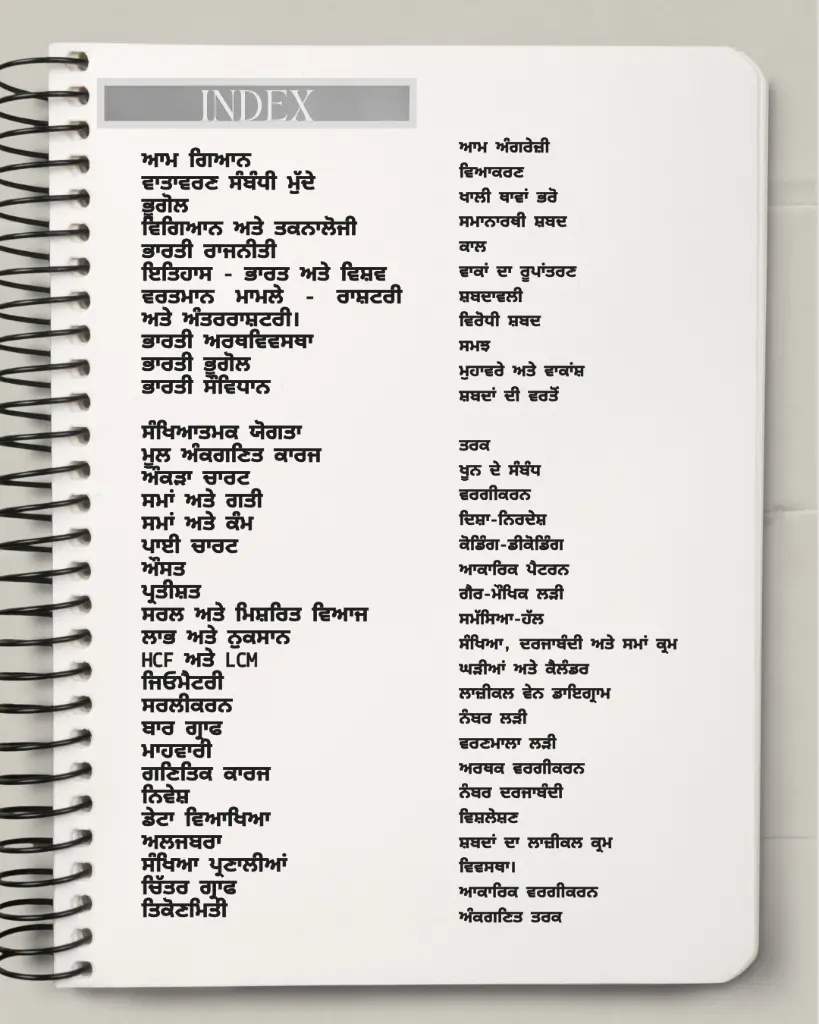 INDEX
ਆਮ ਗਿਆਨ
ਵਾਤਾਵਰਣ ਸੰਬੰਧੀ ਮੁੱਦੇ
ਭੂਗੋਲ
ਵਿਗਿਆਨ ਅਤੇ ਤਕਨਾਲੋਜੀ
ਭਾਰਤੀ ਰਾਜਨੀਤੀ
ਇਤਿਹਾਸ - ਭਾਰਤ ਅਤੇ ਵਿਸ਼ਵ
ਵਰਤਮਾਨ ਮਾਮਲੇ - ਰਾਸ਼ਟਰੀ
ਅਤੇ ਅੰਤਰਰਾਸ਼ਟਰੀ।
ਭਾਰਤੀ ਅਰਥਵਿਵਸਥਾ
ਭਾਰਤੀ ਭੂਗੋਲ
ਭਾਰਤੀ ਸੰਵਿਧਾਨ
ਸੰਖਿਆਤਮਕ ਯੋਗਤਾ
ਮੂਲ ਅੰਕਗਣਿਤ ਕਾਰਜ
ਅੰਕੜਾ ਚਾਰਟ
ਸਮਾਂ ਅਤੇ ਗਤੀ
ਸਮਾਂ ਅਤੇ ਕੰਮ
ਪਾਈ ਚਾਰਟ
ਔਸਤ
ਪ੍ਰਤੀਸ਼ਤ
ਸਰਲ ਅਤੇ ਮਿਸ਼ਰਿਤ ਵਿਆਜ
ਲਾਭ ਅਤੇ ਨੁਕਸਾਨ
HCF ਅਤੇ LCM
ਜਿਓਮੈਟਰੀ
ਸਰਲੀਕਰਨ
ਬਾਰ ਗ੍ਰਾਫ
ਮਾਹਵਾਰੀ
ਗਣਿਤਿਕ ਕਾਰਜ
ਨਿਵੇਸ਼
ਡੇਟਾ ਵਿਆਖਿਆ
ਅਲਜਬਰਾ
ਸੰਖਿਆ ਪ੍ਰਣਾਲੀਆਂ
ਚਿੱਤਰ ਗ੍ਰਾਫ
ਤਿਕੋਣਮਿਤੀ
ਆਮ ਅੰਗਰੇਜ਼ੀ
ਵਿਆਕਰਣ
ਖਾਲੀ ਥਾਵਾਂ ਭਰੋ
ਸਮਾਨਾਰਥੀ ਸ਼ਬਦ
ਕਾਲ
ਵਾਕਾਂ ਦਾ ਰੂਪਾਂਤਰਣ
ਸ਼ਬਦਾਵਲੀ
ਵਿਰੋਧੀ ਸ਼ਬਦ
ਸਮਝ
ਮੁਹਾਵਰੇ ਅਤੇ ਵਾਕਾਂਸ਼
ਸ਼ਬਦਾਂ ਦੀ ਵਰਤੋਂ
ਤਰਕ
ਖੂਨ ਦੇ ਸੰਬੰਧ
ਵਰਗੀਕਰਨ
ਦਿਸ਼ਾ-ਨਿਰਦੇਸ਼
ਕੋਡਿੰਗ-ਡੀਕੋਡਿੰਗ
ਆਕਾਰਿਕ ਪੈਟਰਨ
ਗੈਰ-ਮੌਖਿਕ ਲੜੀ
ਸਮੱਸਿਆ-ਹੱਲ
ਸੰਖਿਆ, ਦਰਜਾਬੰਦੀ ਅਤੇ ਸਮਾਂ ਕ੍ਰਮ
ਘੜੀਆਂ ਅਤੇ ਕੈਲੰਡਰ
ਲਾਜ਼ੀਕਲ ਵੇਨ ਡਾਇਗ੍ਰਾਮ
ਨੰਬਰ ਲੜੀ
ਵਰਣਮਾਲਾ ਲੜੀ
ਅਰਥਕ ਵਰਗੀਕਰਨ
ਨੰਬਰ ਦਰਜਾਬੰਦੀ
ਵਿਸ਼ਲੇਸ਼ਣ
ਸ਼ਬਦਾਂ ਦਾ ਲਾਜ਼ੀਕਲ ਕ੍ਰਮ
ਵਿਵਸਥਾ।
ਆਕਾਰਿਕ ਵਰਗੀਕਰਨ
ਅੰਕਗਣਿਤ ਤਰਕ